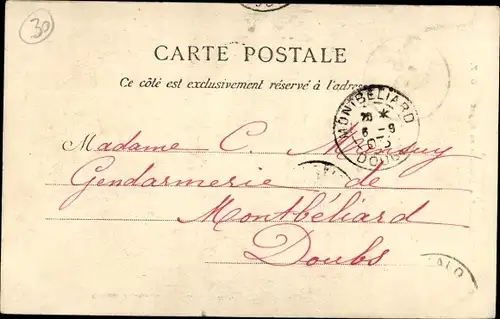 30
CARTE POSTALE
Ce côté est exclusivement réservé à l'adresse
MONTBÉLIARD
6 - 9
03
DOUBS
Madame C.
Gendarmerie de
Montbéliard
Doubs